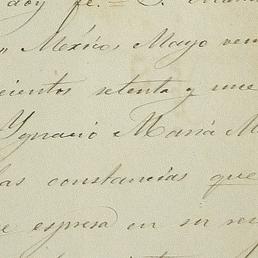 doy fe.
n México, Mayo vein
cientos setenta y nue
Ygnacio María M
las constancias que
e espresa en su res